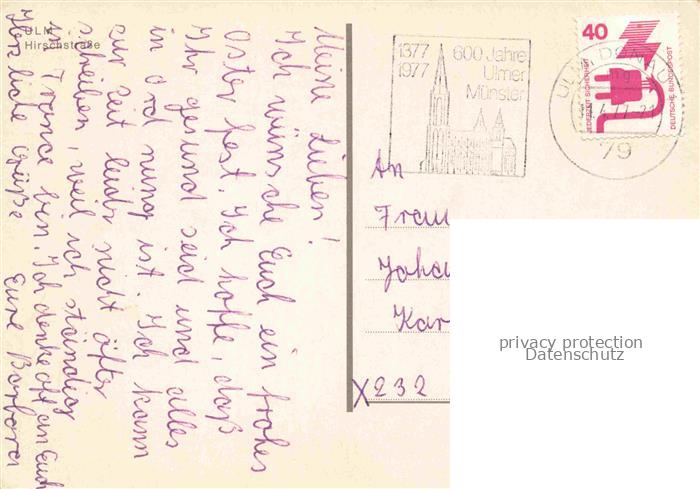 ULM
Hirschstraße
Meine Lieben!
Ich wünsche Euch ein frohes
Osterfest. Ich hoffe, daß
Ihr gesund seid und alles
in Ordnung ist. Ich kann
zur Zeit leider nicht öfter
schreiben, weil ich ständig
in Trance bin. Ich denke oft an Euch
Herzliche Grüße
Eure Barbara
1377
1977
600 Jahre
Ulmer
Münster
40
JEDERZEIT SICHERHEIT
DEUTSCHE BUNDESPOST
79
An
Frau
Joha
Kar
X232
privacy protection
Datenschutz